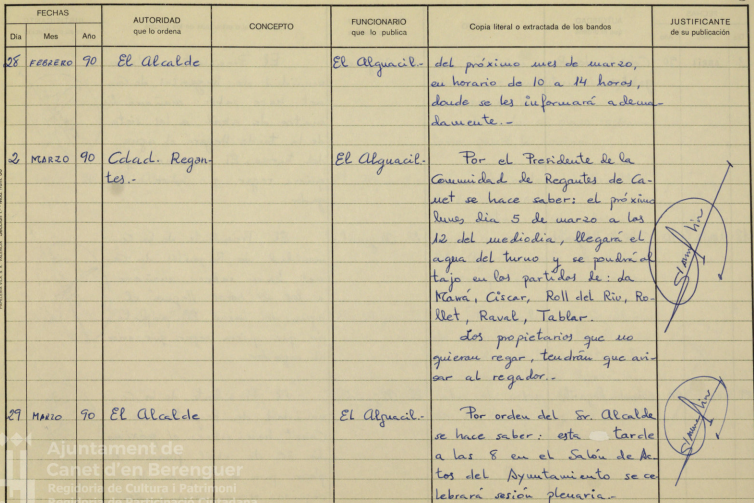 FECHAS
AUTORIDAD
que lo ordena
CONCEPTO
FUNCIONARIO
que lo publica
Copia literal o extractada de los bandos
JUSTIFICANTE
de su publicación
Día Mes Año
28 FEBRERO 90 El Alcalde El Alguacil.- del próximo mes de marzo,
en horario de 10 a 14 horas,
donde se les informará adecua-
damente.-
2 MARZO 90 Cdad. Regan- El Alguacil.- Por el Presidente de la
tes.- Comunidad de Regantes de Ca-
net se hace saber: el próximo
lunes dia 5 de marzo a las
12 del mediodia, llegará el
agua del turno y se pondrá al
tajo en las partidas de: La
Marrá, Ciscar, Roll del Riu, Ro-
llet, Raval, Tablar.
Los propietarios que no
quieran regar, tendrán que avi-
sar al regador.-
29 MARZO 90 El Alcalde El Alguacil.- Por orden del Sr. Alcalde
se hace saber: esta tarde
a las 8 en el Salón de Ac-
tos del Ayuntamiento se ce-
lebrará sesión plenaria.-
Ajuntament de
Canet d'en Berenguer
Regidoria de Cultura i Patrimoni